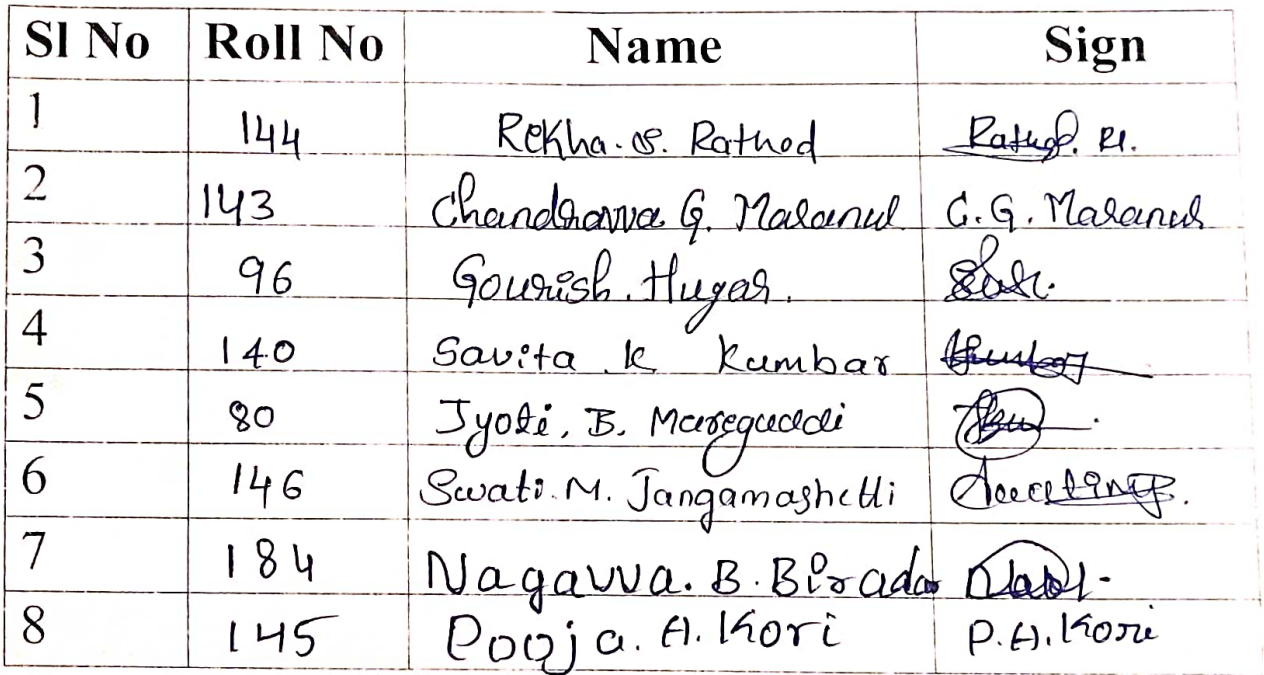 Sl No Roll No Name Sign
1 144 Rekha. S. Rathod Rathod. R.
2 143 Chandravva G. Malanul C.G. Malanul
3 96 Gourish. Hugar.
4 140 Savita K Kumbar
5 80 Jyoti. B. Mareguddi
6 146 Swati. M. Jangamashetti
7 184 Nagavva. B. Biradar
8 145 Pooja. A. Kori P.A. Kori